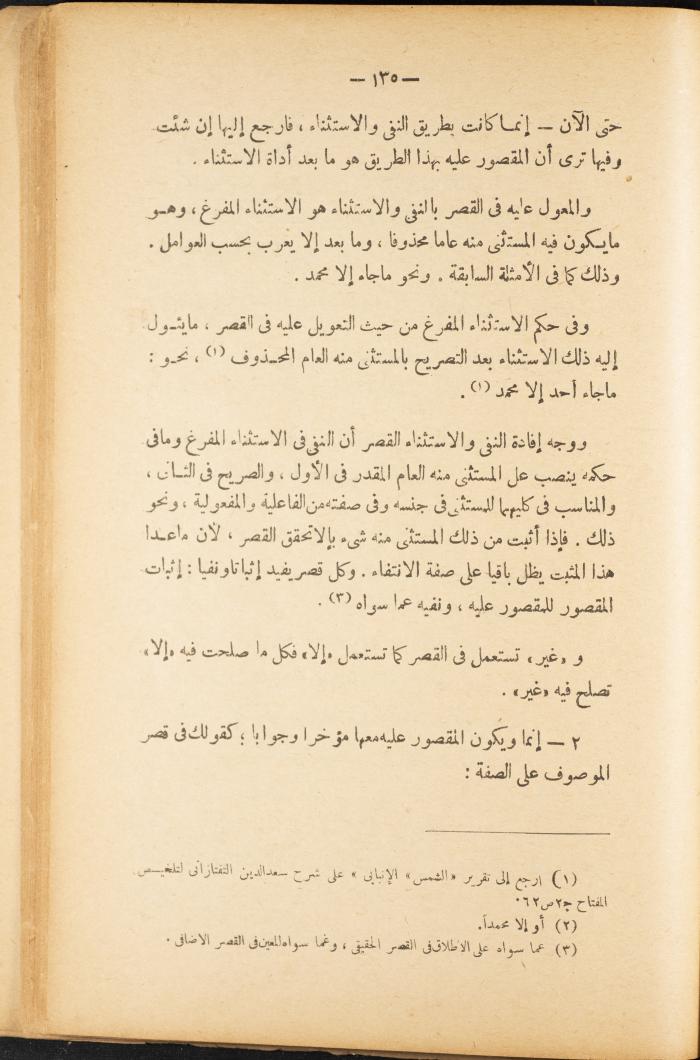 — ١٣٥ —
حتى الآن — إنما كانت بطريق النفى والاستثناء ، فارجع إليها إن شئت
وفيها ترى أن المقصور عليه بهذا الطريق هو ما بعد أداة الاستثناء .
والمعول عليه فى القصر بالنفى والاستثناء هو الاستثناء المفرغ ، وهو
مايكون فيه المستثنى منه عاما محذوفا ، وما بعد إلا يعرب بحسب العوامل .
وذلك كما فى الأمثلة السابقة . ونحو ماجاء إلا محمد .
وفى حكم الاستثناء المفرغ من حيث التعويل عليه فى القصر ، مايئول
إليه ذلك الاستثناء بعد التصريح بالمستثنى منه العام المحذوف (١) ، نحو :
ماجاء أحد إلا محمد (١) .
ووجه إفادة النفى والاستثناء القصر أن النفى فى الاستثناء المفرغ ومافى
حكمه ينصب على المستثنى منه العام المقدر فى الأول ، والصريح فى الثانى ،
والمناسب فى كليهما للمستثنى فى جنسه وفى صفته من الفاعلية والمفعولية ، ونحو
ذلك . فإذا أثبت من ذلك المستثنى منه شىء بإلا تحقق القصر ، لأن ماعدا
هذا المثبت يظل باقيا على صفة الانتفاء . وكل قصر يفيد إثباتا ونفيا : إثبات
المقصور للمقصور عليه ، ونفيه عما سواه (٣) .
و «غير» تستعمل فى القصر كما تستعمل «إلا» فكل ما صلحت فيه «إلا»
تصلح فيه «غير» .
٢ — إنما ويكون المقصور عليه معها مؤخرا وجوابا ؛ كقولك فى قصر
الموصوف على الصفة :
(١) ارجع إلى تقرير «الشمس» الإنبابى » على شرح سعدالدين التفتازانى لتلخيص
المفتاح ج٢ص٦٢.
(٢) أو إلا محمداً.
(٣) عما سواه على الاطلاق فى القصر الحقيقى ، وعما سواه المعين فى القصر الاضافى .